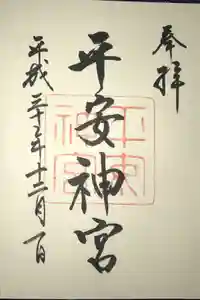 奉拝
平安神宮
平成二十三年十二月一日